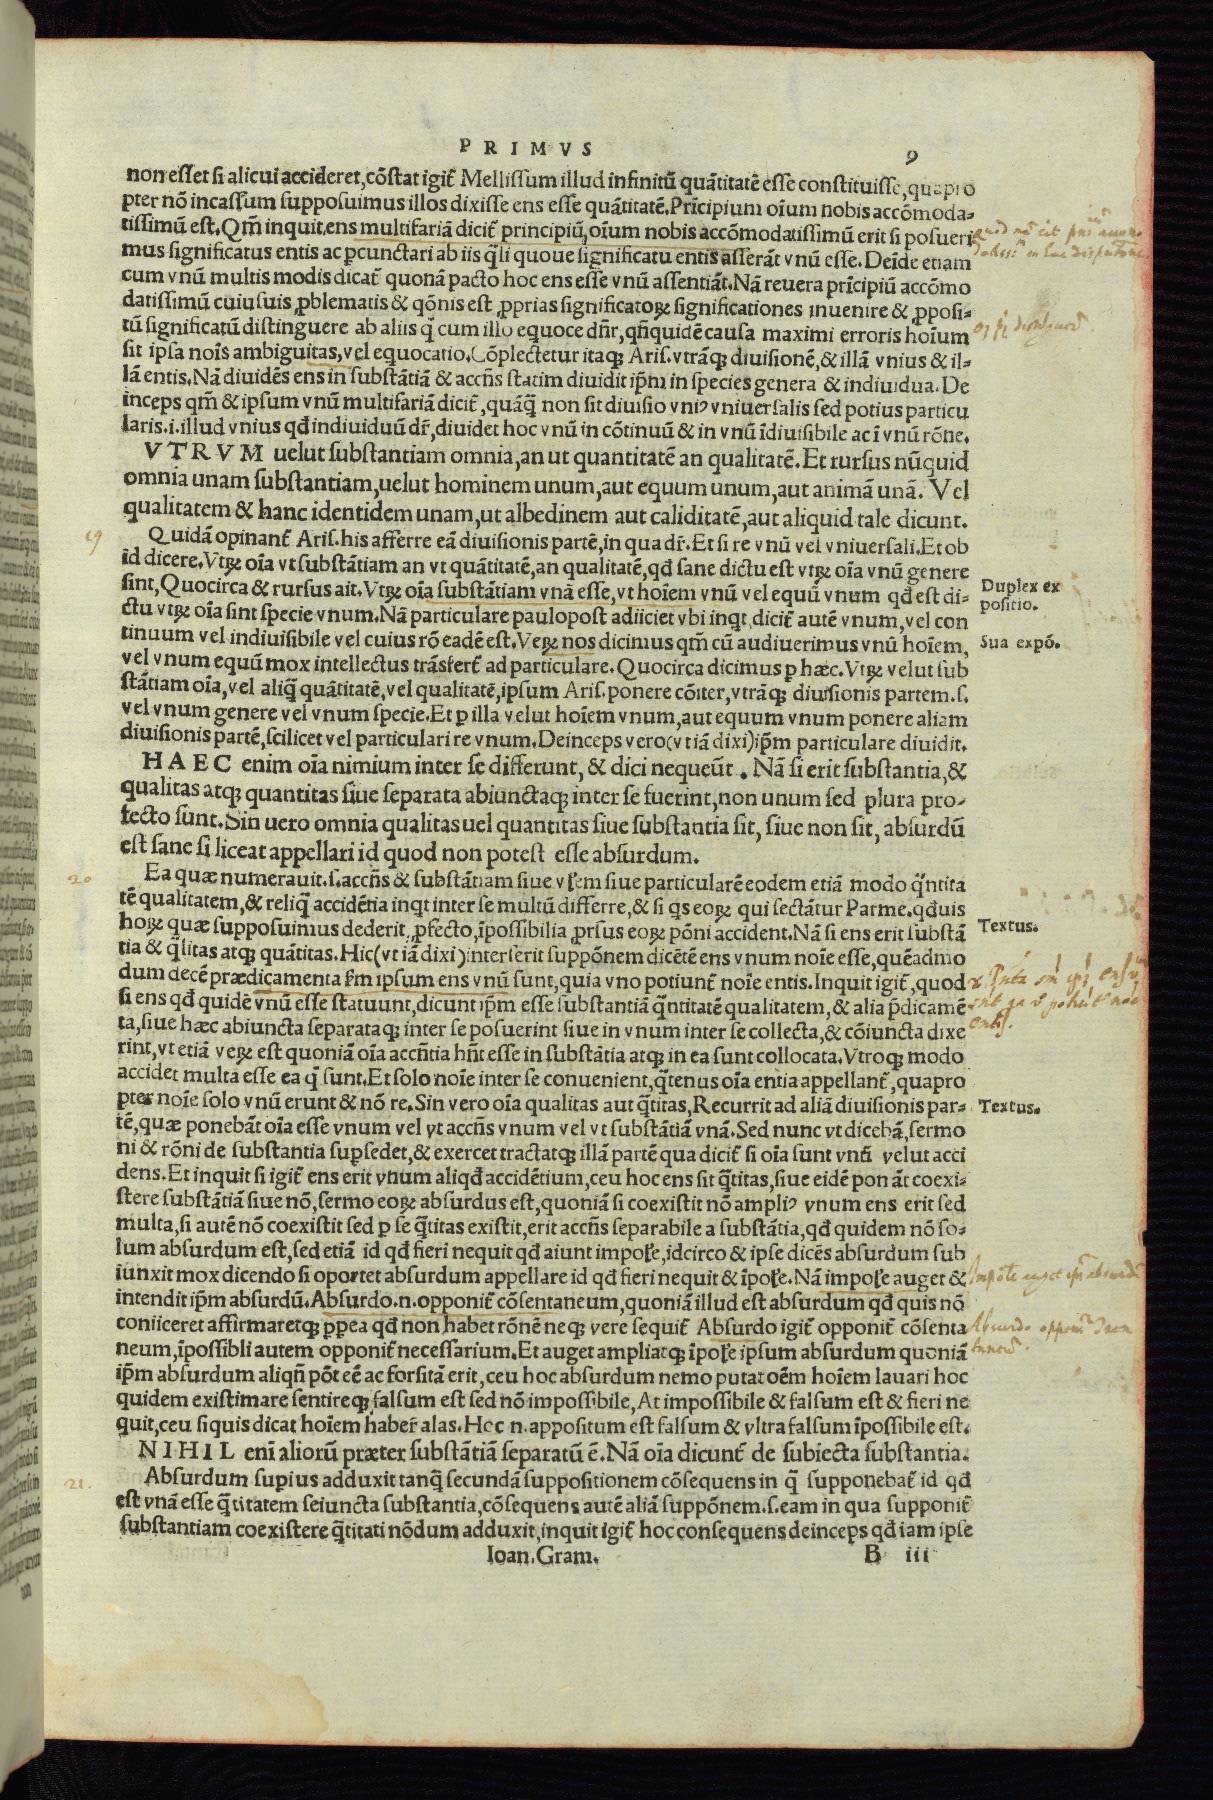 PRIMVS 9
non esset si alicui accideret,cōstat igit᷑ Mellissum illud infinitū quātitatē esse constituisse,quapro
pter nō incassum supposuimus illos dixisse ens esse quātitatē.Prīcipium oīum nobis accōmoda-
tissimū est.Qm̄ inquit,ens multifariā dicit᷑ principiū,oīum nobis accōmodatissimū erit si posueri
mus significatus entis ac ꝑcunctari ab iis q̄li quoue significatu entis asserāt vnū esse.Deīde etiam
cum vnū multis modis dicat᷑ quonā pacto hoc ens esse vnū assentiāt.Nā reuera prīcipiū accōmo
datissimū cuiusuis ꝓblematis & qōnis est ꝓprias significatoꝝ significationes inuenire & ꝓposi-
tū significatū distinguere ab aliis q̄ cum illo equoce dn̄r,qn̄quidē causa maximi erroris hoīum
sit ipsa noīs ambiguitas,vel equocatio.Cōplectetur itaqꝫ Aris.vtrāqꝫ diuisionē,& illā vnius & il-
lā entis.Nā diuidēs ens in substātiā & accn̄s statim diuidit ip̄m in species genera & indiuidua.De
inceps qm̄ & ipsum vnū multifariā dicit᷑,quāq̄ non sit diuisio vniꝰ vniuersalis sed potius particu
laris.i.illud vnius qđ indiuiduū dr̄,diuidet hoc vnū in cōtinuū & in vnū īdiuisibile ac ī vnū rōne.
VTRVM uelut substantiam omnia,an ut quantitatē an qualitatē.Et rursus nūquid
omnia unam substantiam,uelut hominem unum,aut equum unum,aut animā unā. Vel
qualitatem & hanc identidem unam,ut albedinem aut caliditatē,aut aliquid tale dicunt.
19
Quidā opinant᷑ Aris.his afferre eā diuisionis partē,in qua dr̄.Et si re vnū vel vniuersali.Et ob
īd dicere.Vtꝝ oīa vt substātiam an vt quātitatē,an qualitatē,qđ sane dictu est vtꝝ oīa vnū genere
sint,Quocirca & rursus ait.Vtꝝ oīa substātiam vnā esse,vt hoīem vnū vel equū vnum qđ est di-
Duplex ex
positio.
ctu vtꝝ oīa sint specie vnum.Nā particulare paulopost adiiciet vbi inqt,dicit᷑ autē vnum,vel con
tinuum vel indiuisibile vel cuius rō eadē est.Veꝝ nos dicimus qm̄ cū audiuerimus vnū hoīem,
Sua expō.
vel vnum equū mox intellectus trāsfert᷑ ad particulare.Quocirca dicimus ꝑ hæc.Vtꝝ velut sub
stātiam oīa,vel aliq̄ quātitatē,vel qualitatē,ipsum Aris.ponere cōiter,vtrāqꝫ diuisionis partem.s.
vel vnum genere vel vnum specie.Et ꝑ illa velut hoīem vnum,aut equum vnum ponere aliam
diuisionis partē,scilicet vel particulari re vnum.Deinceps vero(vt iā dixi)ip̄m particulare diuidit.
HAEC enim oīa nimium inter se differunt, & dici nequeūt . Nā si erit substantia,&
qualitas atqꝫ quantitas siue separata abiunctaqꝫ inter se fuerint,non unum sed plura pro-
fecto sunt.Sin uero omnia qualitas uel quantitas siue substantia sit, siue non sit, absurdū
est sane si liceat appellari id quod non potest esse absurdum.
20
Ea quæ numerauit.s.accn̄s & substātiam siue vłem siue particularē eodem etiā modo q̄ntita
tē qualitatem,& reliq̄ accidētia inqt inter se multū differre,& si qs eoꝝ qui sectātur Parme.qđuis
hoꝝ quæ supposuimus dederit,ꝓfecto,īpossibilia ꝓrsus eoꝝ pōni accident.Nā si ens erit substā
Textus.
tia & q̄litas atqꝫ quātitas.Hic(vt iā dixi)interserit suppōnem dicētē ens vnum noīe esse,quēadmo
dum decē prædicamenta fīm ipsum ens vnū sunt,quia vno potiunt᷑ noīe entis.Inquit igit᷑,quod
si ens qđ quidē vnū esse statuunt,dicunt ip̄m esse substantiā q̄ntitatē qualitatem,& alia p̄dicamē
ta,siue hæc abiuncta separataqꝫ inter se posuerint siue in vnum inter se collecta,& cōiuncta dixe
rint,vt etiā veꝝ est quoniā oīa accn̄tia hn̄t esse in substātia atqꝫ in ea sunt collocata.Vtroqꝫ modo
accidet multa esse ea q̄ sunt.Et solo noīe inter se conuenient,q̄tenus oīa entia appellant᷑,quapro
pter noīe solo vnū erunt & nō re.Sin vero oīa qualitas aut q̄titas,Recurrit ad aliā diuisionis par-
Textus.
tē,quæ ponebāt oīa esse vnum vel vt accn̄s vnum vel vt substātiā vnā.Sed nunc vt dicebā,sermo
ni & rōni de substantia supsedet,& exercet tractatqꝫ illā partē qua dicit᷑ si oīa sunt vnū velut acci
dens.Et inquit si igit᷑ ens erit vnum aliqđ accidētium,ceu hoc ens sit q̄titas,siue eidē ponāt coexi-
stere substātiā siue nō,sermo eoꝝ absurdus est,quoniā si coexistit nō ampliꝰ vnum ens erit sed
multa,si autē nō coexistit sed ꝑ se q̄titas existit,erit accn̄s separabile a substātia,qđ quidem nō so-
lum absurdum est,sed etiā id qđ fieri nequit qđ aiunt impołe,idcirco & ipse dicēs absurdum sub
iunxit mox dicendo si oportet absurdum appellare id qđ fieri nequit & īpołe.Nā impołe auget &
intendit ip̄m absurdū.Absurdo.n.opponit᷑ cōsentaneum,quoniā illud est absurdum qđ quis nō
coniiceret affirmaretqꝫ ꝓpea qđ non habet rōnē neqꝫ vere sequit᷑ Absurdo igit᷑ opponit᷑ cōsenta
neum,īpossibli autem opponit᷑ necessarium.Et auget ampliatqꝫ īpołe ipsum absurdum quoniā
ip̄m absurdum aliqn̄ pōt eē ac forsitā erit,ceu hoc absurdum nemo putat oēm hoīem lauari hoc
quidem existimare sentireqꝫ falsum est sed nō impossibile,At impossibile & falsum est & fieri ne
quit,ceu si quis dicat hoīem haber̄ alas.Hoc n.appositum est falsum & vltra falsum īpossibile est.
NIHIL enī aliorū præter substātiā separatū ē.Nā oīa dicunt᷑ de subiecta substantia.
21.
Absurdum supius adduxit tanq̄ secundā suppositionem cōsequens in q̄ supponebat᷑ id qđ
est vnā esse q̄titatem seiuncta substantia,cōsequens autē aliā suppōnem.s.eam in qua supponit᷑
substantiam coexistere q̄titati nōdum adduxit,inquit igit᷑ hoc consequens deinceps qđ iam ipse
Ioan.Gram. B iii